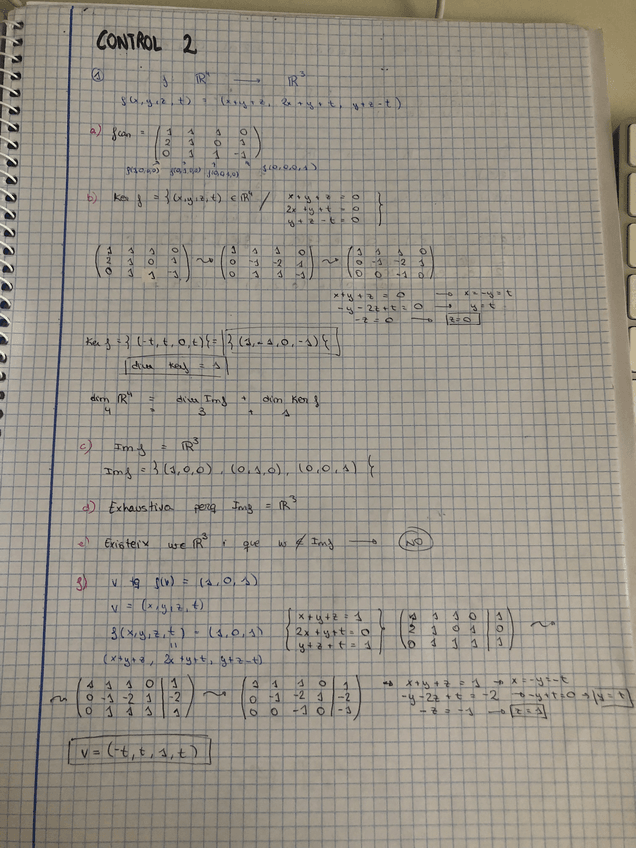 CONTROL 2
① f ℝ⁴ → ℝ³
f(x,y,z,t) = (x+y+z, 2x+y+t, y+z-t)
a) fcan = ( 1 1 1 0
2 1 0 1
0 1 1 -1 )
f(1,0,0,0) f(0,1,0,0) f(0,0,1,0) f(0,0,0,1)
b) Ker f = { (x,y,z,t) ∈ ℝ⁴ / x+y+z = 0
2x+y+t = 0
y+z-t = 0 }
( 1 1 1 0 ) ( 1 1 1 0 ) ( 1 1 1 0 )
( 2 1 0 1 ) ~ ( 0 -1 -2 1 ) ~ ( 0 -1 -2 1 )
( 0 1 1 -1 ) ( 0 1 1 -1 ) ( 0 0 -1 0 )
x+y+z = 0 → x = -y = t
-y-2z+t = 0 → y = t
-z = 0 → z=0
Ker f = { (-t, t, 0, t) } = { (1, -1, 0, -1) }
dim Ker f = 1
dim ℝ⁴ = dim Im f + dim Ker f
4 = 3 + 1
c) Im f = ℝ³
Im f = { (1,0,0), (0,1,0), (0,0,1) }
d) Exhaustiva perq Im f = ℝ³
e) Existeix w∈ℝ³ i que w ∉ Im f → NO
f) v tq f(v) = (1,0,1)
v = (x,y,z,t)
f(x,y,z,t) = (1,0,1)
=
(x+y+z, 2x+y+t, y+z-t)
{ x+y+z = 1
2x+y+t = 0
y+z+t = 1 }
( 1 1 1 0 | 1
2 1 0 1 | 0
0 1 1 1 | 1 ) ~
~ ( 1 1 1 0 | 1 ) ~ ( 1 1 1 0 | 1 ) → x+y+z = 1 → x=-y=-t
( 0 -1 -2 1 | -2 ) ( 0 -1 -2 1 | -2 ) -y-2z+t = -2 → -y+t=0 → y=t
( 0 1 1 1 | 1 ) ( 0 0 -1 0 | -1 ) -z = -1 → z=1
v = (-t, t, 1, t)